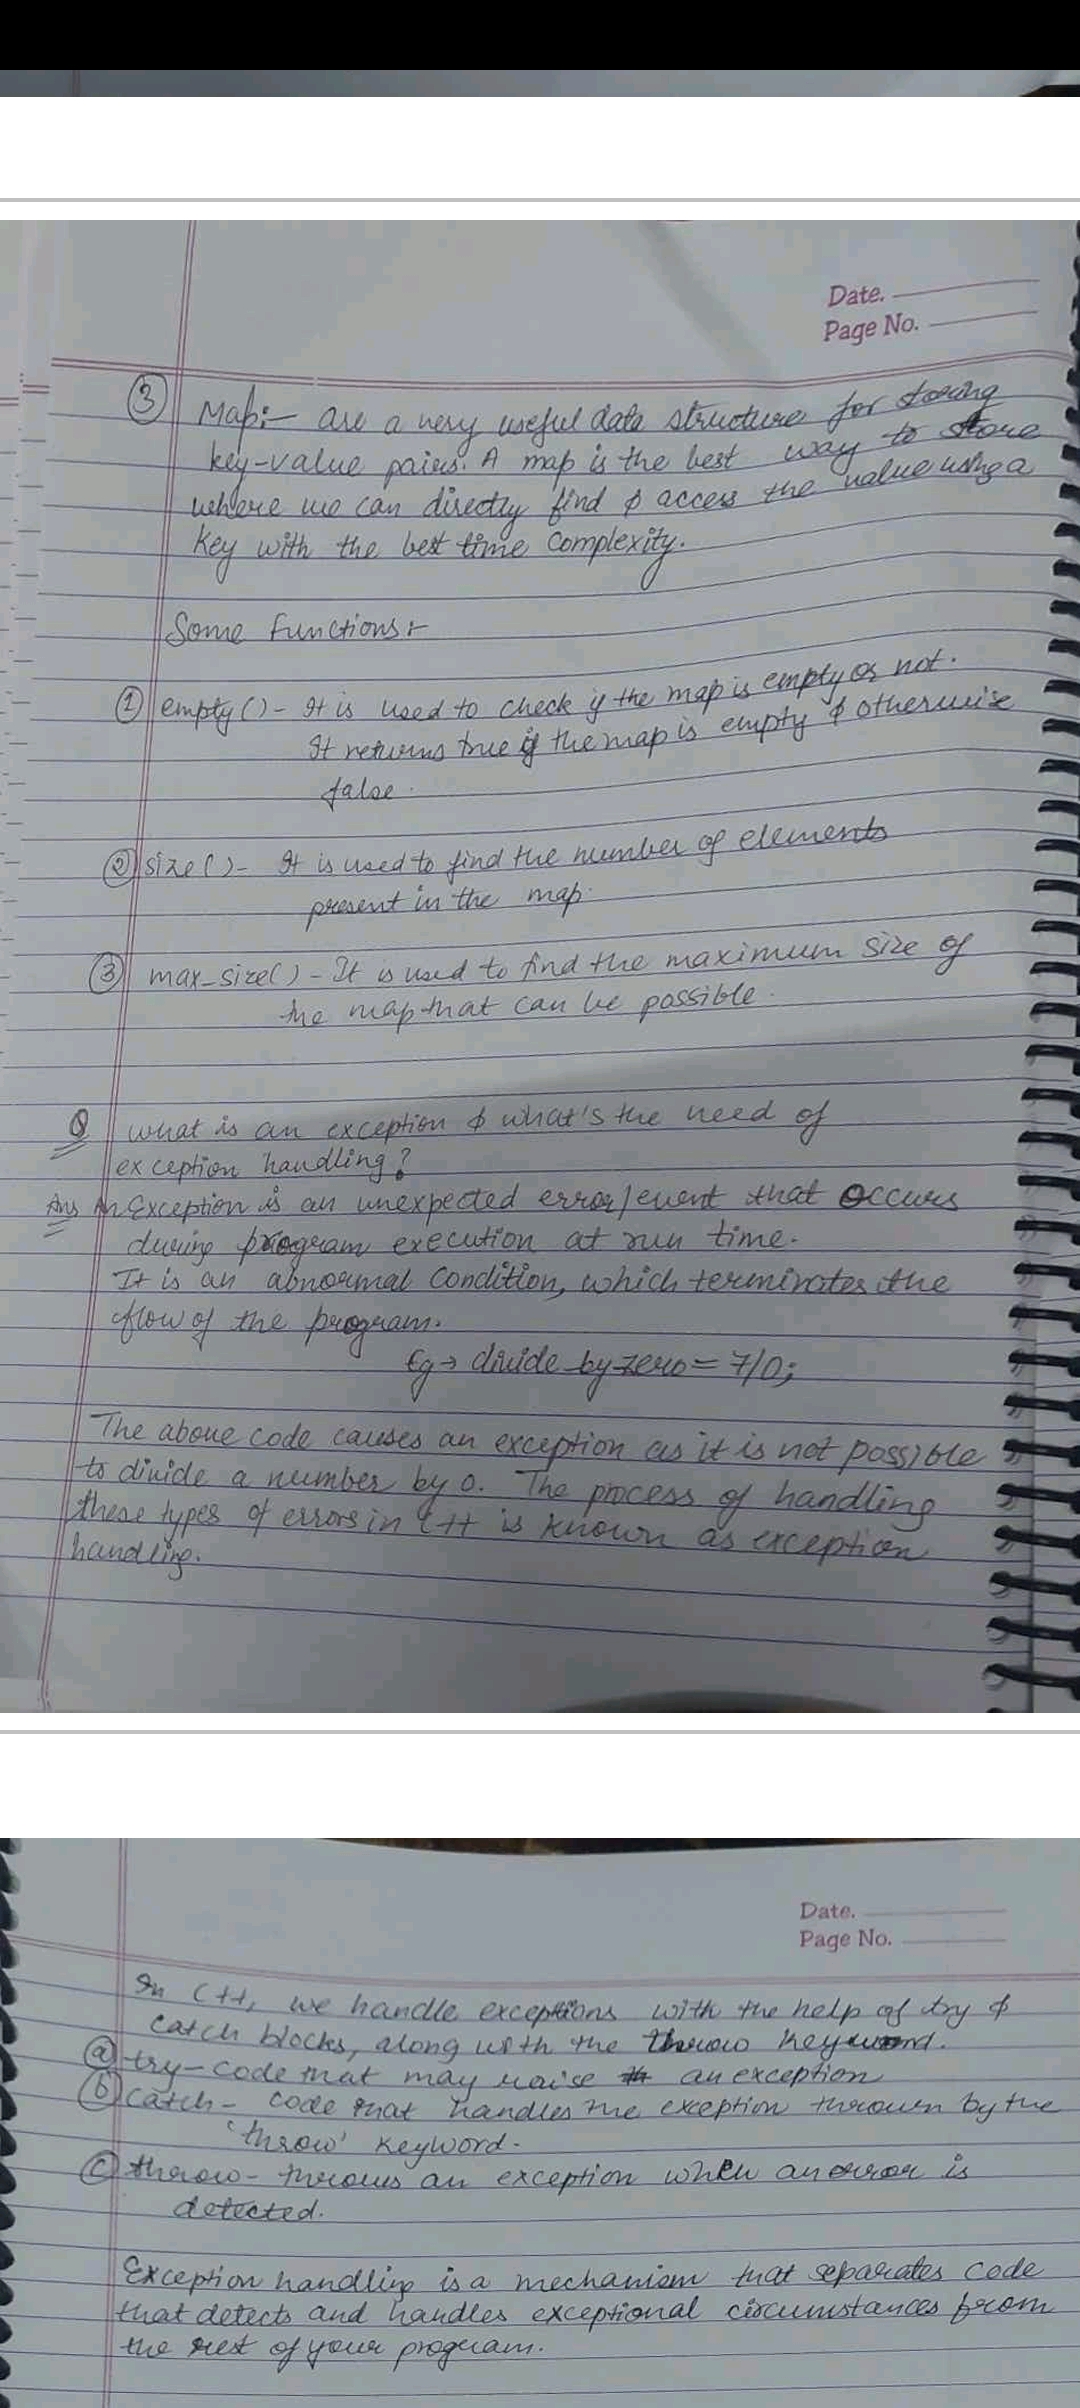 Date.
Page No.
③ Map:- are a very useful data structure for storing
key-value pairs. A map is the best way to store
where we can directly find & access the value using a
key with the best time complexity.
Some functions:-
① empty() - It is used to check if the map is empty or not.
It returns true if the map is empty & otherwise
false.
② size() - It is used to find the number of elements
present in the map.
③ max_size() - It is used to find the maximum size of
the map that can be possible.
Q what is an exception & what's the need of
exception handling?
Ans An Exception is an unexpected error/event that occurs
during program execution at run time.
It is an abnormal condition, which terminates the
flow of the program.
Eg → divide_by_zero = 7/0;
The above code causes an exception as it is not possible
to divide a number by 0. The process of handling
these types of errors in C++ is known as exception
handling.
Date.
Page No.
In C++, we handle exceptions with the help of try &
catch blocks, along with the throw keyword.
ⓐ try - code that may raise an exception
ⓑ catch - code that handles the exception thrown by the
'throw' keyword.
ⓒ throw - throws an exception when an error is
detected.
Exception handling is a mechanism that separates code
that detects and handles exceptional circumstances from
the rest of your program.